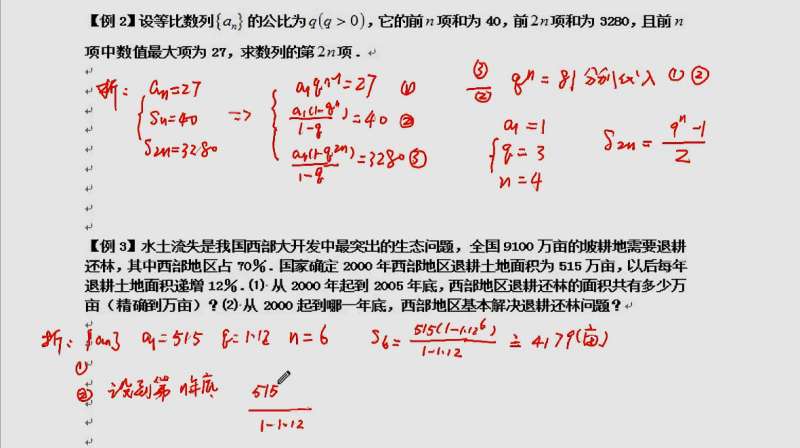 【例 2】设等比数列{aₙ}的公比为q(q > 0)，它的前n项和为 40，前2n项和为 3280，且前n
项中数值最大项为 27，求数列的第2n项．
析：
aₙ=27
Sₙ=40
S₂ₙ=3280
=>
a₁qⁿ⁻¹=27 ①
a₁(1-qⁿ)/1-q=40 ②
a₁(1-q²ⁿ)/1-q=3280 ③
③/② qⁿ=81 分别代入 ① ②
a₁=1
q=3
n=4
S₂ₙ= qⁿ-1/2
【例 3】水土流失是我国西部大开发中最突出的生态问题，全国 9100 万亩的坡耕地需要退耕
还林，其中西部地区占 70%．国家确定 2000 年西部地区退耕土地面积为 515 万亩，以后每年
退耕土地面积递增 12%．(1) 从 2000 年起到 2005 年底，西部地区退耕还林的面积共有多少万
亩（精确到万亩）？(2) 从 2000 起到哪一年底，西部地区基本解决退耕还林问题？
析：{aₙ} a₁=515 q=1.12 n=6 S₆= 515(1-1.12⁶)/1-1.12 ≈ 4179(万亩)
①
② 设到第 n年底 515/1-1.12